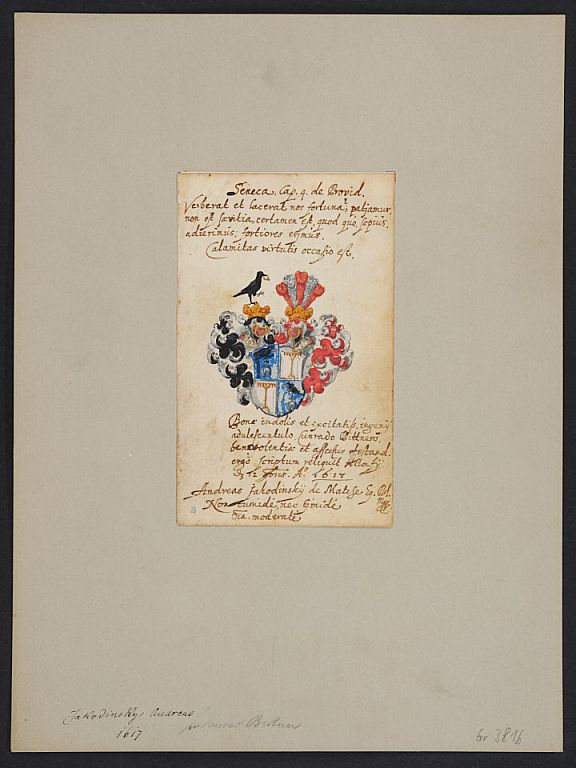 Seneca, Cap. 4. de Provid.
Verberat et lacerat nos fortuna, patiamur,
non est sævitia, certamen est, quod quo sæpius
adierimus, fortiores erimus.
Calamitas virtutis occasio est.
Bonæ indolis et excitatiss. ingenij
adulescentulo Cunrado Bittnero
benevolentiæ et affectus testand.
ergo scriptum reliquit
12 A.º 1617
Andreas Jakodinskÿ de Eq.
Non tumidè, nec timidè
moderatè
Jakodinsky Andreas
1617
Bittner
Gr 3816